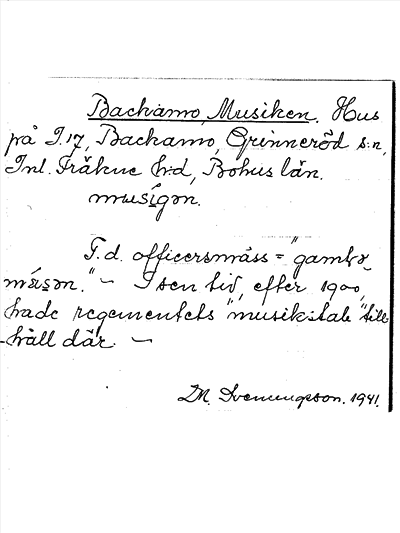 Backamo, Musiken. Hus
på I.17, Backamo, Grinneröd s:n,
Inl. Fräkne h:d, Bohus län.
musígən.
F.d. officersmäss = "gamlə
mǽsən." ~ I sen tid, efter 1900,
hade regementets "musikstab" till-
håll där. ~
M. Svenungsson. 1941.